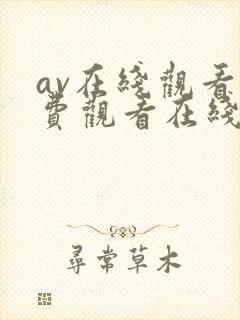 av在綫觀看
費觀看在綫
尋常草木